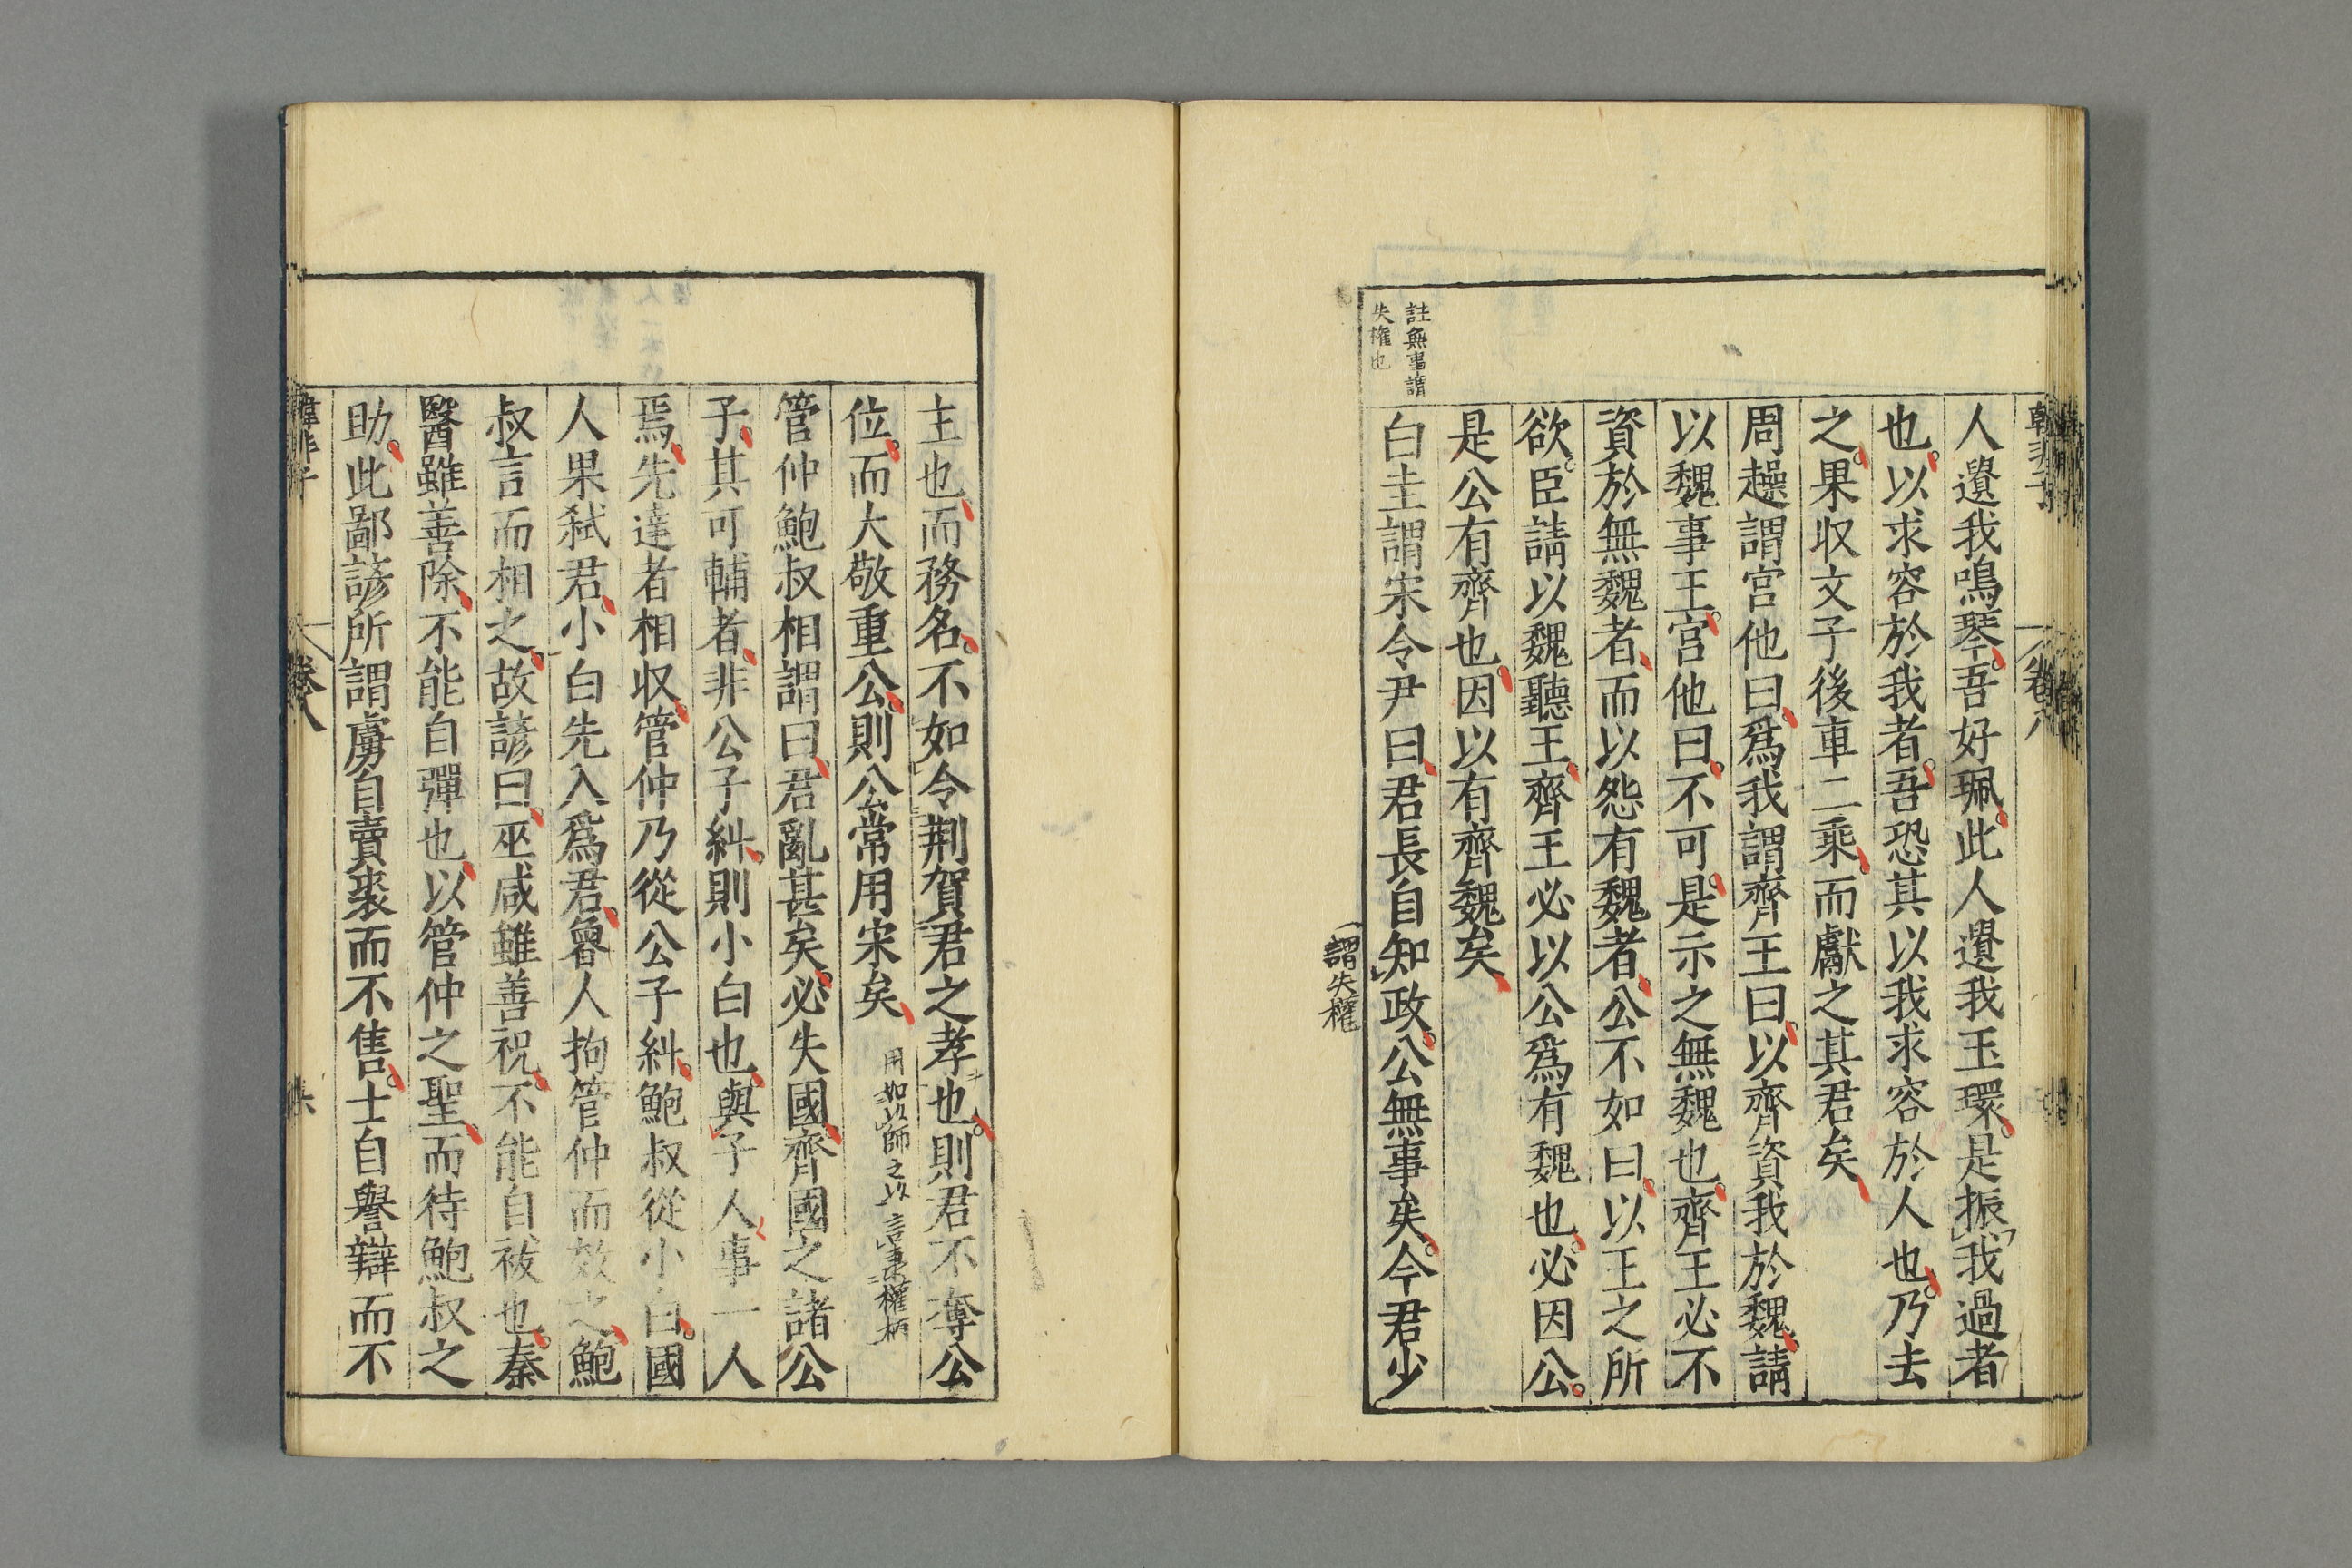 韓非子 卷八
人遺我鳴琴吾好珮此人遺我玉環是振我過者
也以求容於我者吾恐其以我求容於人也乃去
之果収文子後車二乘而獻之其君矣
周趮謂宫他曰爲我謂齊王曰以齊資我於魏請
以魏事王宫他曰不可是示之無魏也齊王必不
資於無魏者而以怨有魏者公不如曰以王之所
欲臣請以魏聽王齊王必以公爲有魏也必因公
是公有齊也因以有齊魏矣
註無事謂
失權也
白圭謂宋令尹曰君長自知政公無事矣今君少
謂失權
主也而務名不如令荆賀君之孝也則君不奪公
位而大敬重公則公常用宋矣
用如以師之以言秉權柄
管仲鮑叔相謂曰君亂甚矣必失國齊國之諸公
子其可輔者非公子糾則小白也與子人事一人
焉先達者相収管仲乃從公子糾鮑叔從小白國
人果弑君小白先入爲君魯人拘管仲而效之鮑
叔言而相之故諺曰巫咸雖善祝不能自祓也秦
醫雖善除不能自彈也以管仲之聖而待鮑叔之
助此鄙諺所謂虜自賣裘而不售士自譽辯而不
韓非子 卷八